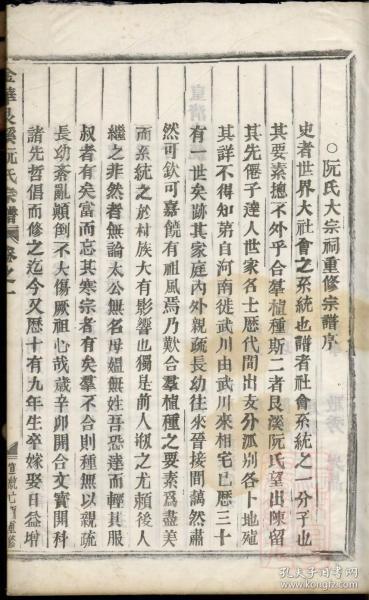 ○阮氏大宗祠重修宗譜序
史者世界大社會之系統也譜者社會系統之一分子也
其要素揔不外乎合羣植種斯二者艮溪阮氏望出陳留
其先僊子達人世家名士歷代間出支分派別各卜地殖
其詳不得知第自河南徙武川由武川來相宅已歷三十
有一世矣跡其家庭內外親疏長幼往來晉接間藹然肅
然可欽可嘉饒有祖風焉乃歎合羣植種之要素爲盡美
而系統之於村族大有影響也獨是前人瀫之尤賴後人
繼之非然者無論太公無名母媼無姓吾恐達而輕其服
叔者有矣富而忘其寒宗者有矣羣不合則種無以親疏
長幼紊亂顛倒不大傷厥祖心哉歲辛卯開合文實開科
諸先哲倡而修之迄今又歷十有九年生卒嫁娶日益增
金華艮溪阮氏宗譜 卷之一
孔夫子旧书网